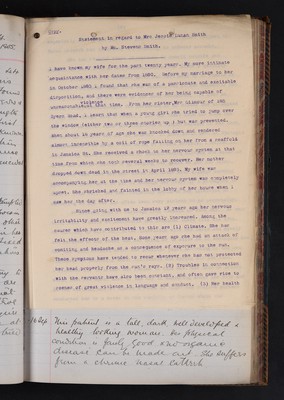 Statement in regard to Mrs Jessie Duncan Smith
by Wm. Stewson Smith.
I have known my wife for the past twenty years. My more intimate
acquaintance with her dates from 1881. Before my marriage to her
in October 1881 I found that she was of a passionate and excitable
disposition, and there were evidences of her being capable of
violence
at this time. From her sister, Mrs
Dyson Read, I learn that when a young girl she tried to jump over
the window (either two or three stories up) but was prevented.
When about 16 years of age she was knocked down and rendered
almost insensible by a coil of rope falling on her from a scaffold
in Jamaica St. She received a shock to her nervous system at that
time from which she took several weeks to recover. Her mother
dropped down dead in the street in April 1881. My wife was
accompanying her at the time and her nervous system was completely
upset. She shrieked and fainted in the lobby of her house when I
saw her the day after.
Since going with me to Jamaica 17 years ago her nervous
irritability and excitement have greatly increased. Among the
causes which have contributed to this are (1) Climate. She has
felt the effects of the heat. Some years ago she had an attack of
vomiting and headache as a consequence of exposure to the sun.
These symptoms have tended to recur whenever she has not protected
her head properly from the sun's rays. (2) Troubles in connection
with the servants have also been constant, and often gave rise to
scenes of great violence in language and conduct. (3) Her health
This patient is a tall, dark, well developed &
healthy looking woman. Her physical
condition is fairly good & no organic
disease can be made out. She suffers
from a chronic nasal catarrh